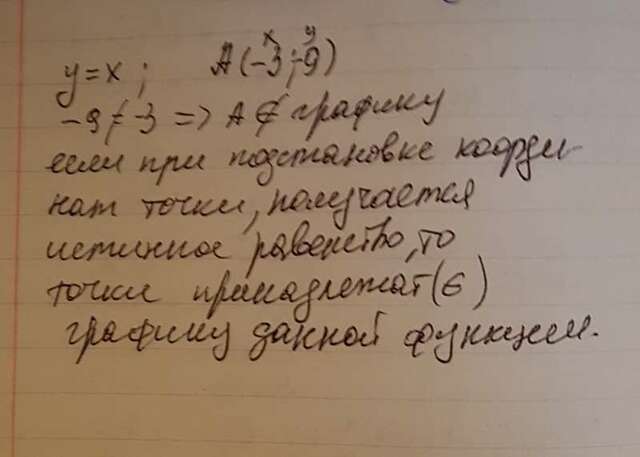 x y
y = x ; A(-3; -9)
-9 ≠ -3 => A ∉ графику
если при подстановке коорди-
нат точки, получается
истинное равенство, то
точки принадлежат (∈)
графику данной функции.